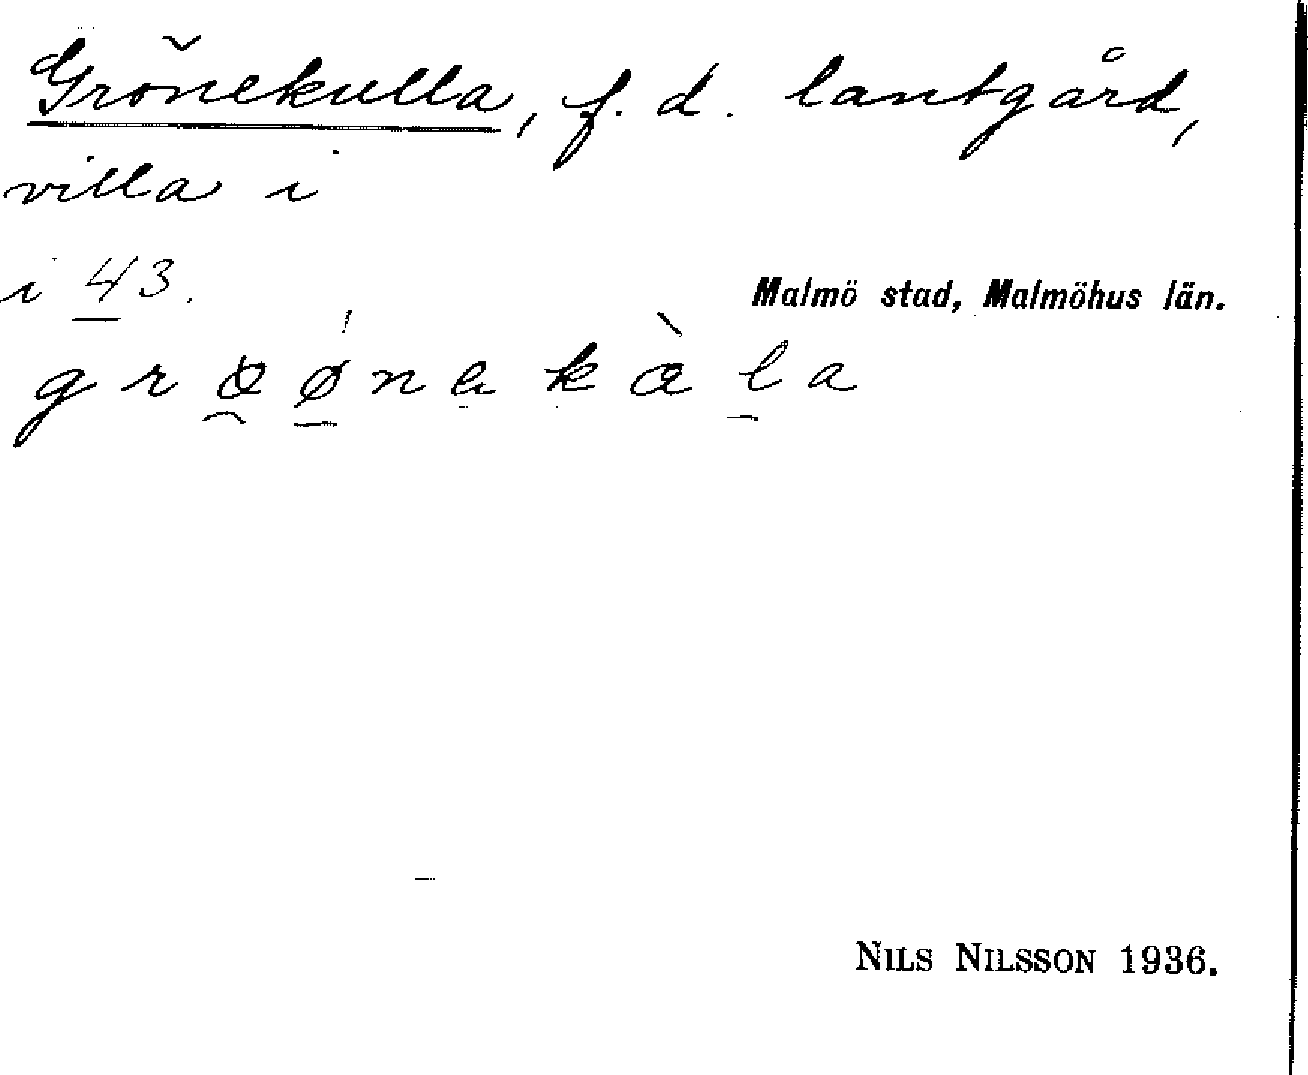 Grönekulla, f. d. lantgård,
villa i
i 43.
Malmö stad, Malmöhus län.
NILS NILSSON 1936.